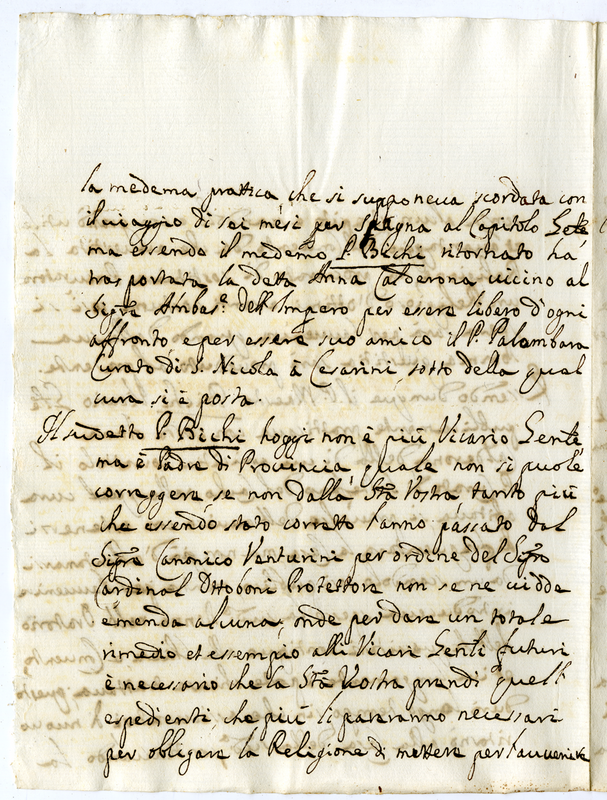 la medema prattica, che si supponeva scordata con
il viaggio di sei mesi per Spagna al Capitolo Gēle
ma essendo il medemo P. Bichi ritornato há
trasportata la detta Anna Calderona vicino al
Sigre Ambasr. dell'Impero per essere libero d'ogni
affronto e per essere suo amico il P. Palombara
Curato di S. Nicola à Cesarini, sotto della qual
cura si è posta.
Il sudetto P. Bichi hoggi non è piú Vicario Genle
ma è Padre di Provincia quale non si puole
correggere se non dallà Stà Vostra tanto piú
che essendo stato corretto l'anno passato dal
Sigre Canonico Venturini per ordine del Sigre
Cardinal Ottoboni Protettore non se ne vidde
emenda alcuna; onde per dare un totale
rimedio et essempio alli Vicari Genli futuri
è necessario che la Stà Vostra prendi quelli
espedienti, che piú li pareranno necessari
per obligare la Religione di mettere per l'auuenire